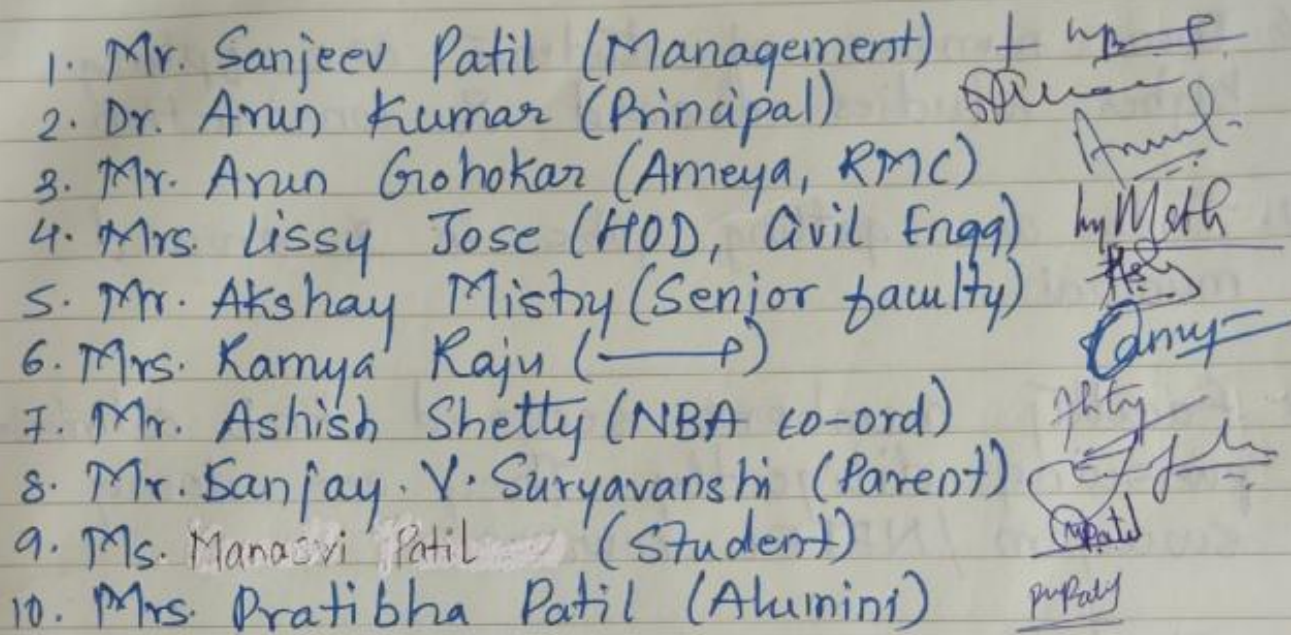 1. Mr. Sanjeev Patil (Management)
2. Dr. Arun Kumar (Principal)
3. Mr. Arun Gohokar (Ameya, RMC)
4. Mrs. Lissy Jose (HOD, Civil Engg)
5. Mr. Akshay Mistry (Senior faculty)
6. Mrs. Ramya Raju (——〃——)
7. Mr. Ashish Shetty (NBA co-ord)
8. Mr. Sanjay. V. Suryavanshi (Parent)
9. Ms. Manasvi Patil (Student)
10. Mrs. Pratibha Patil (Alumini)